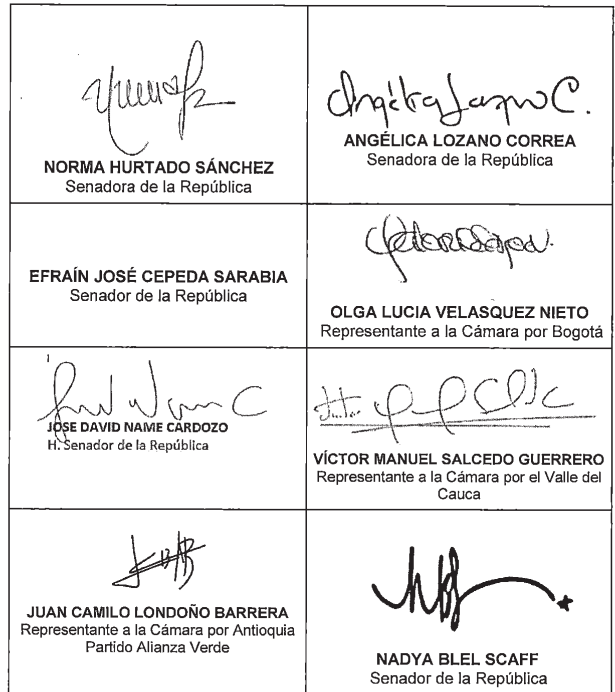 NORMA HURTADO SÁNCHEZ
Senadora de la República
Angélica Lozano C.
ANGÉLICA LOZANO CORREA
Senadora de la República
EFRAÍN JOSÉ CEPEDA SARABIA
Senador de la República
OLGA LUCIA VELASQUEZ NIETO
Representante a la Cámara por Bogotá
JOSE DAVID NAME CARDOZO
H. Senador de la República
VÍCTOR MANUEL SALCEDO GUERRERO
Representante a la Cámara por el Valle del
Cauca
JUAN CAMILO LONDOÑO BARRERA
Representante a la Cámara por Antioquia
Partido Alianza Verde
NADYA BLEL SCAFF
Senador de la República